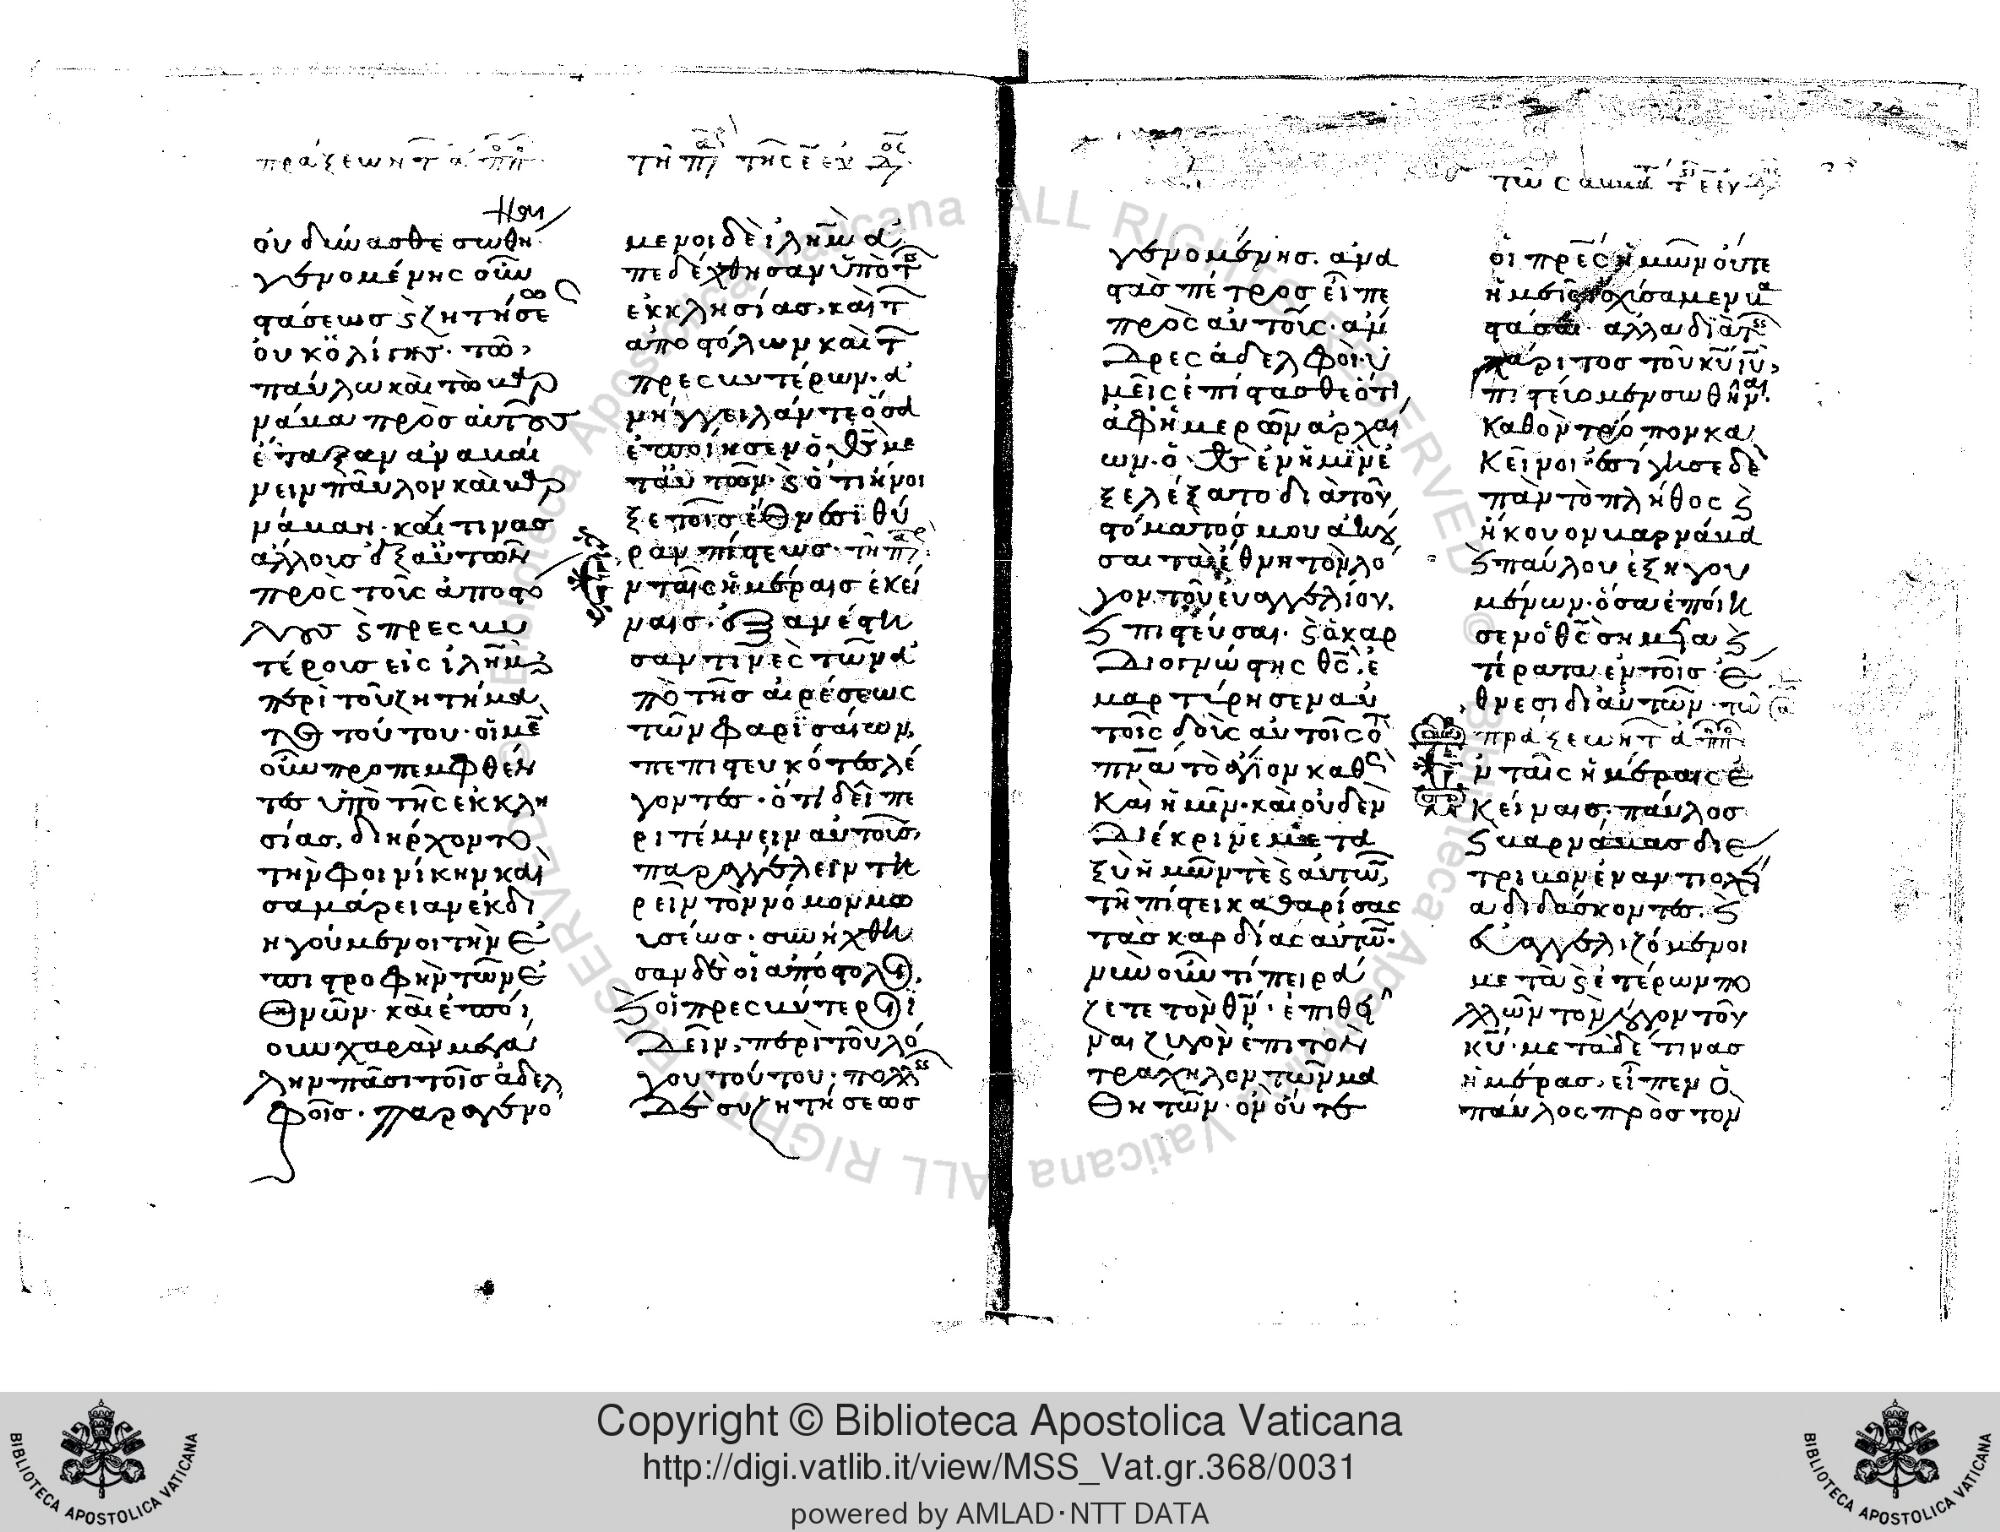 οὐ δύνασθε σωθῆ
γενομένης οὖν
στάσεως ϗ ζητήσε
οὐκ ὀλίγης· τῶ
παύλω καὶ τῶ βαρ
νάβα πρὸς αὐτοὺς
ἔταξαν ἀναβαί
νειν παῦλον καὶ βαρ
νάβαν· καί τινας
ἄλλους ἐξ αὐτῶν
πρὸς τοὺς ἀποστό
λους ϗ πρεσβυ
τέρους εἰς ἱλημ
περὶ τοῦ ζητήμα
τος τούτου· οἱ μὲ
οὖν προπεμφθέν
τες ὑπὸ τῆς ἐκκλη
σίας, διήρχοντο
τὴν φοινίκην καὶ
σαμάρειαν ἐκδι
ηγούμενοι τὴν ἐ
πιστροφὴν τῶν ἐ
θνῶν· καὶ ἐποί
ουν χαρὰν μεγά
λην πᾶσι τοῖς ἀδελ
φοῖς· παραγενό
μενοι δὲ ἱλημ ἀ
πεδέχθησαν ὑπὸ τ
ἐκκλησίας, καὶ τ
ἀποστόλων καὶ τ
πρεσβυτέρων· ἀ
νήγγειλάν τε ὅσα
ἐποίησεν ὁ θς με
τ αὐτῶν· ϗ ὅτι ἤνοι
ξε τοῖς ἔθνεσι θύ
ραν πίστεως·
Εν ταῖς ἡμέραις ἐκεί
ναις· ἐξανέστη
σάν τινες τῶν ἀ
πὸ τῆς αἱρέσεως
τῶν φαρισαίων,
πεπιστευκότες λέ
γοντες· ὅτι δεῖ πε
ριτέμνειν αὐτοὺς,
παραγγέλλειν τη
ρεῖν τὸν νόμον μω
υσέως· συνήχθη
σαν δὲ οἱ ἀπόστολοι,
ϗ οἱ πρεσβύτεροι ἰ
δεῖν, περὶ τοῦ λό
γου τούτου· πολλῆς
δὲ συζητήσεως
γενομένης· ἀνα
στὰς πέτρος εἶπε
πρὸς αὐτούς· ἄν
δρες ἀδελφοὶ· ὑ
μεῖς ἐπίστασθε ὅτι
ἀφ ἡμερῶν ἀρχαί
ων· ὁ θς ἐν ἡμῖν ἐ
ξελέξατο διὰ τοῦ
στόματός μου ἀκοῦ
σαι τὰ ἔθνη τὸν λό
γον τοῦ εὐαγγελίου,
ϗ πιστεῦσαι· ϗ ὁ καρ
διογνώστης θς, ἐ
μαρτύρησεν αὐ
τοῖς δοὺς αὐτοῖς τὸ
πνα τὸ ἅγιον καθὼς
καὶ ἡμῖν· καὶ οὐδὲν
διέκρινε μετα
ξὺ ἡμῶν τὲ ϗ αὐτῶν,
τῆ πίστει καθαρίσας
τὰς καρδίας αὐτῶν·
νῦν οὖν τί πειρά
ζετε τὸν θν· ἐπιθεῖ
ναι ζυγὸν ἐπὶ τὸν
τράχηλον τῶν μα
θητῶν· ὃν οὔτε
οἱ πρες ἡμῶν οὔτε
ἡμεῖς ἰσχύσαμεν βα
στάσαι· ἀλλὰ διὰ τῆς
χάριτος τοῦ κυ ιυ,
πιστεύομεν σωθῆναι·
καθ ὃν τρόπον κἀ
κεῖνοι· ἐσίγησε δὲ
πᾶν τὸ πλῆθος ϗ
ἤκουον βαρνάβα
ϗ παύλου ἐξηγου
μένων· ὅσα ἐποίη
σεν ὁ θς σημεῖα ϗ
τέρατα ἐν τοῖς ἔ
θνεσι δι αὐτῶν·
Εν ταῖς ἡμέραις ἐ
κείναις· παῦλος
ϗ βαρνάβας διέ
τριβον ἐν ἀντιοχεί
α διδάσκοντες· ϗ
εὐαγγελιζόμενοι
μετὰ ϗ ἑτέρων πο
λλῶν τὸν λόγον τοῦ
κυ· μετὰ δέ τινας
ἡμέρας, εἶπεν ὁ
παῦλος πρὸς τὸν
Copyright © Biblioteca Apostolica Vaticana
http://digi.vatlib.it/view/MSS_Vat.gr.368/0031
powered by AMLAD·NTT DATA
BIBLIOTECA APOSTOLICA VATICANA
BIBLIOTECA APOSTOLICA VATICANA